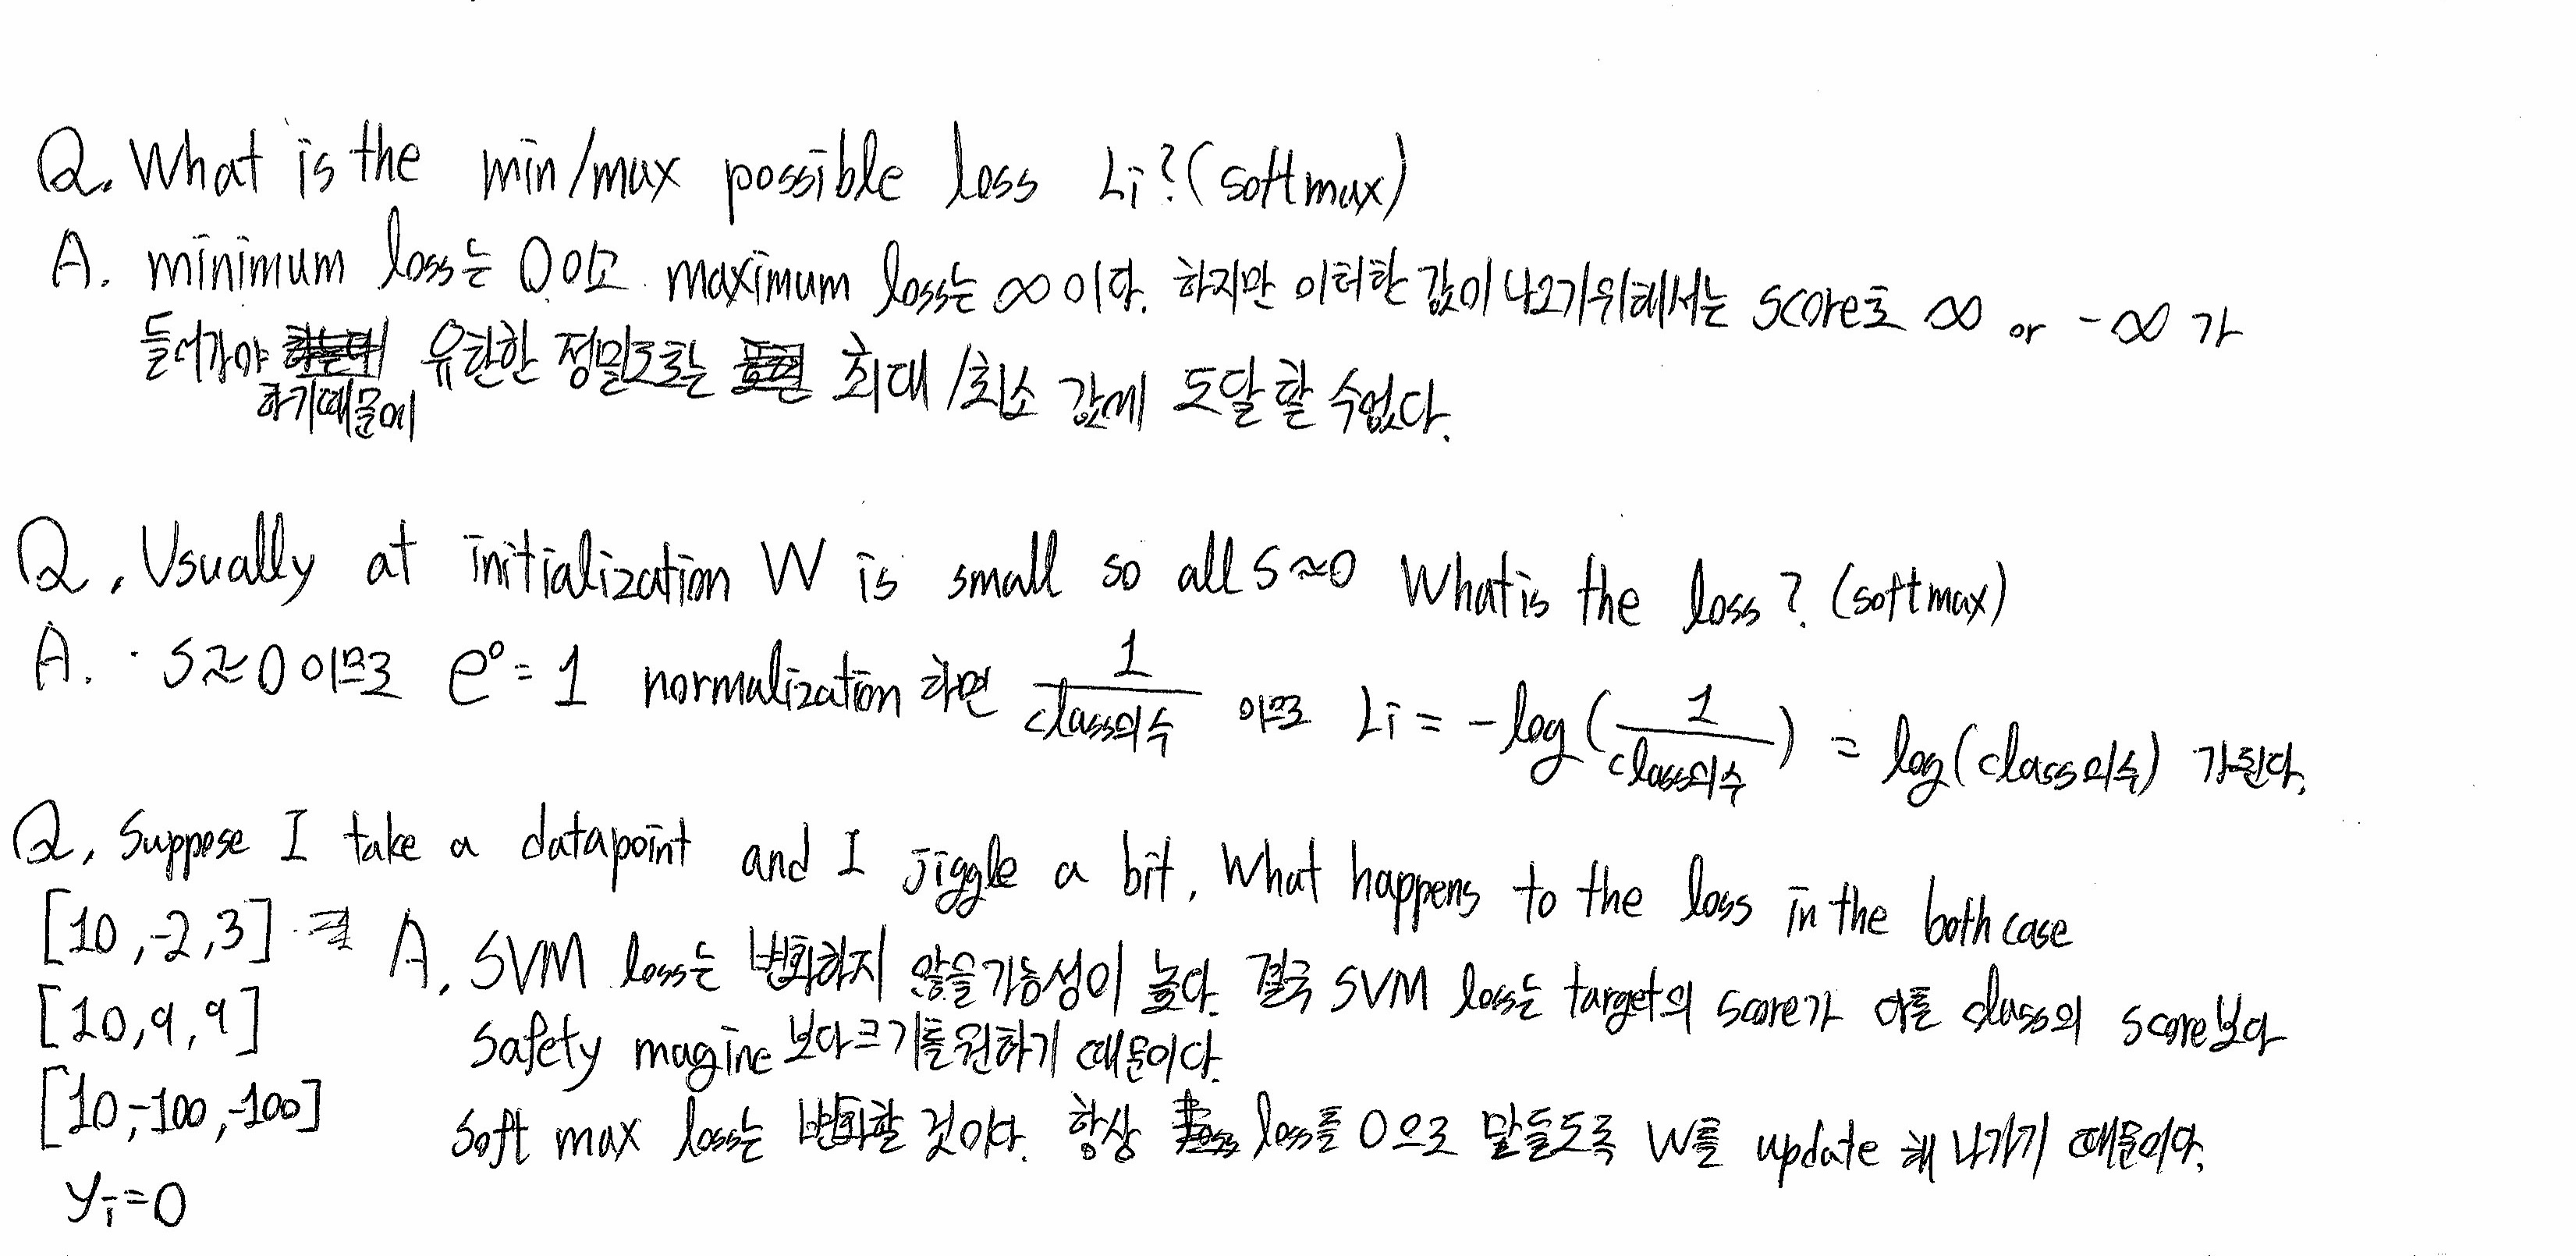 Q. What is the min/max possible loss Li? (softmax)
A. minimum loss는 0이고 maximum loss는 ∞이다. 하지만 이러한 값이 나오기위해서는 score로 ∞ or -∞ 가
들어가야 하기때문에 유한한 정밀도로는 최대/최소 값에 도달 할 수없다.
Q. Usually at initialization W is small so all s≈0 What is the loss? (softmax)
A. s≈0 이므로 e⁰=1 normalization 하면 1/class의수 이므로 Li = -log(1/class의수) = log(class의수) 가된다.
Q. Suppose I take a datapoint and I jiggle a bit. What happens to the loss in the both case
[10,-2,3]
[10,9,9]
[10,-100,-100]
yi=0
A. SVM loss는 변화하지 않을가능성이 높다. 결국 SVM loss는 target의 score가 다른 class의 score보다
safety magine 보다크기를원하기 때문이다.
soft max loss는 변화할 것이다. 항상 loss를 0으로 만들도록 W를 update 해 나가기 때문이다.